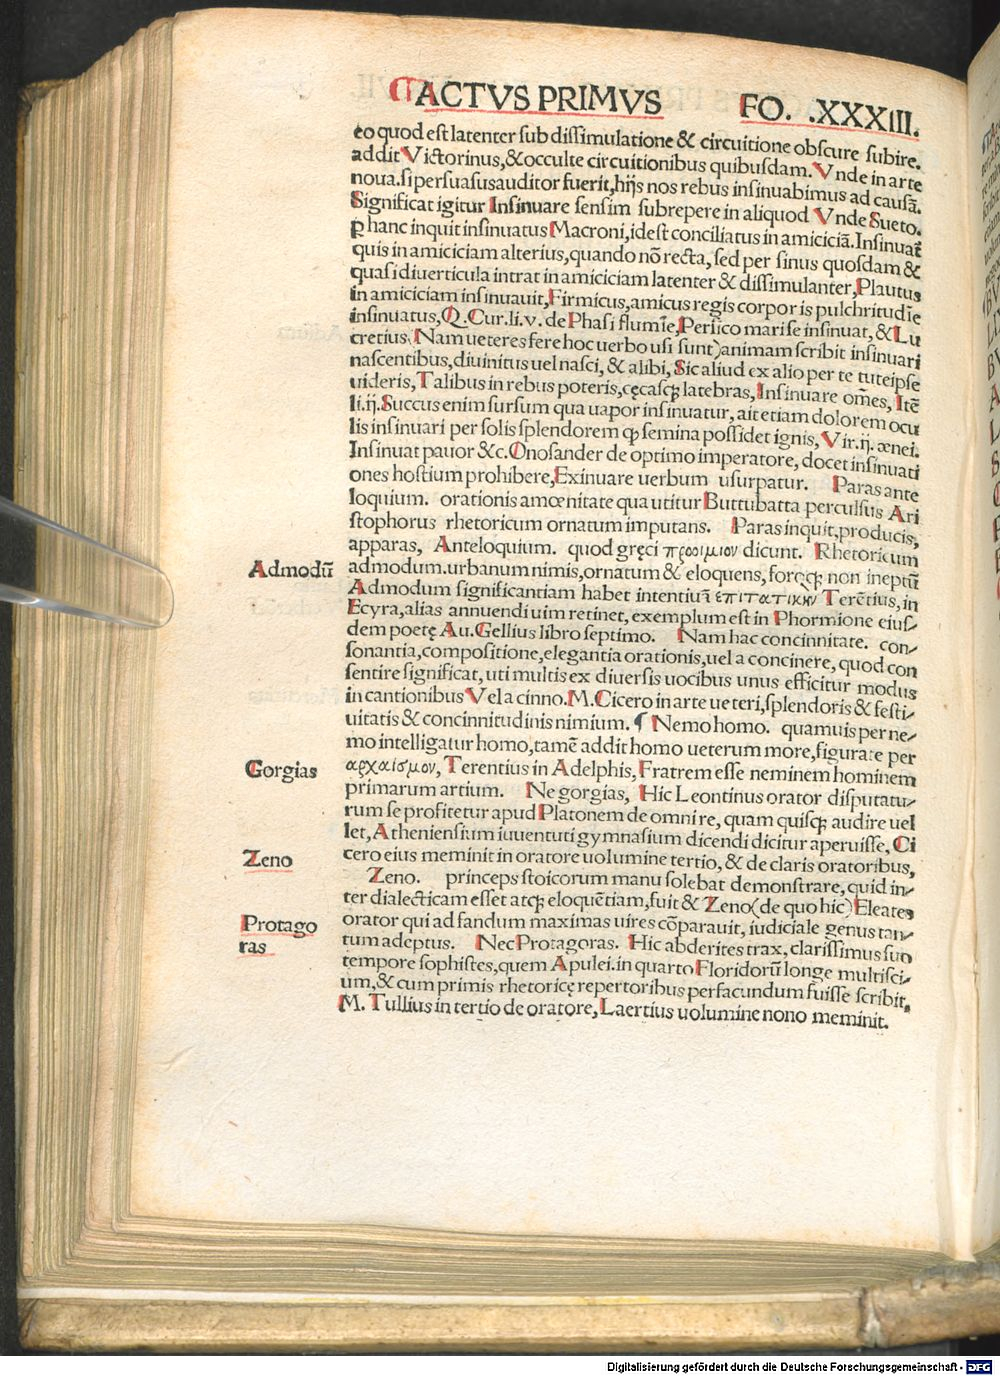 ¶ACTVS PRIMVS FO. .XXXIII.
eo quod est latenter sub dissimulatione & circuitione obscure subire.
addit Victorinus,&occulte circuitionibus quibusdam.Vnde in arte
noua.si persuasusauditor fuerit,hijs nos rebus insinuabimus ad causā.
Significat igitur Insinuare sensim subrepere in aliquod Vnde Sueto.
ꝑ hanc inquit insinuatus Macroni,idest conciliatus in amiciciā.Insinuat̄
quis in amiciciam alterius,quando nō recta, sed per sinus quosdam &
quasi diuerticula intrat in amiciciam latenter & dissimulanter,Plautus
in amiciciam insinuauit,Firmicus,amicus regis corporis pulchritudīe
insinuatus,Q.Cur.li.v.de Phasi flumīe,Persico mari se insinuat,&Lu
cretius(Nam ueteres fere hoc uerbo usi sunt)animam scribit insinuari
nascentibus,diuinitus uel nasci,& alibi,Sic aliud ex alio per te tuteipse
uideris,Talibus in rebus poteris,cęcasqꝫ latebras,Insinuare om̄es,Itē
li.ij.Succus enim sursum qua uapor insinuatur,ait etiam dolorem ocu
lis insinuari per solis splendorem ꝙ semina possidet ignis,Vir.ij.ænei.
Insinuat pauor &c.Onosander de optimo imperatore,docet insinuati
ones hostium prohibere,Exinuare uerbum usurpatur. Paras ante
loquium. orationis amœnitate qua utitur Buttubatta perculsus Ari
stophorus rhetoricum ornatum imputans. Paras inquit,producis,
apparas, Anteloquium. quod gręci προοιμιον dicunt. Rhetoricum
Admodū admodum.urbanum nimis,ornatum & eloquens,foreqꝫ non ineptū
Admodum significantiam habet intentiuā ἐπιτατικὴν Terētius,in
Ecyra,alias annuendi uim retinet,exemplum est in Phormione eius/
dem poetę Au.Gellius libro septimo. Nam hac concinnitate. con/
sonantia,compositione,elegantia orationis,uel a concinere, quod con
sentire significat,uti multis ex diuersis uocibus unus efficitur modus
in cantionibus Vel a cinno.M.Cicero in arte ueteri,splendoris & festi/
uitatis & concinnitudinis nimium. ¶ Nemo homo. quamuis per ne/
mo intelligatur homo,tamē addit homo ueterum more,figurate per
Gorgias αρχαισμον,Terentius in Adelphis,Fratrem esse neminem hominem
primarum artium. Ne gorgias, Hic Leontinus orator disputatu/
rum se profitetur apud Platonem de omni re, quam quisqꝫ audire uel
let,Atheniensium iuuentuti gymnasium dicendi dicitur aperuisse,Ci
Zeno cero eius meminit in oratore uolumine tertio,& de claris oratoribus,
Zeno. princeps stoicorum manu solebat demonstrare,quid in/
ter dialecticam esset atqꝫ eloquētiam,fuit & Zeno(de quo hic)Eleates
Protago orator qui ad fandum maximas uires cōparauit, iudiciale genus tan/
ras tum adeptus. Nec Protagoras. Hic abderites trax,clarissimus suo
tempore sophistes,quem Apulei.in quarto Floridorū longe multisci/
um,& cum primis rhetoricę repertoribus perfacundum fuisse scribit.
M.Tullius in tertio de oratore,Laertius uolumine nono meminit.
Digitalisierung gefördert durch die Deutsche Forschungsgemeinschaft - DFG